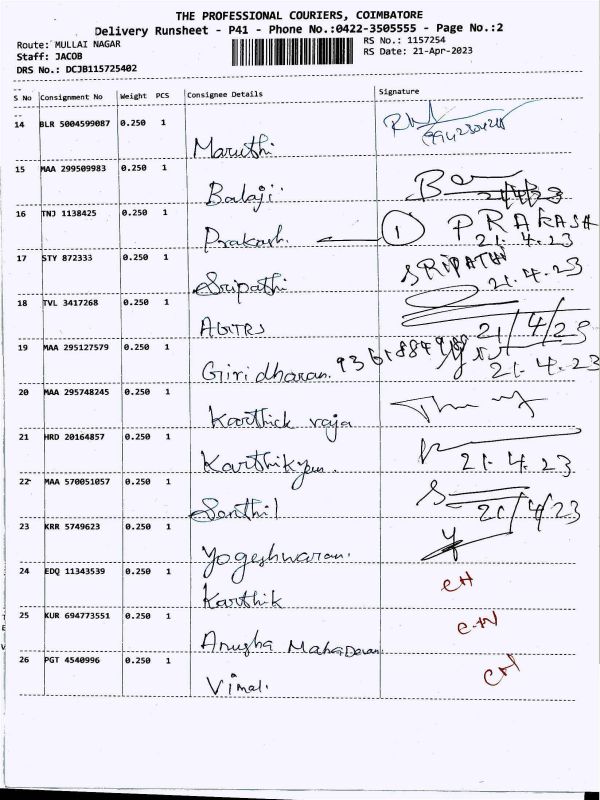 THE PROFESSIONAL COURIERS, COIMBATORE
Delivery Runsheet - P41 - Phone No.:0422-3505555 - Page No.:2
Route: MULLAI NAGAR RS No.: 1157254
Staff: JACOB RS Date: 21-Apr-2023
DRS No.: DCJB115725402
S No Consignment No Weight PCS Consignee Details Signature
14 BLR 5004599087 0.250 1
Maruthi
15 MAA 299509983 0.250 1
Balaji 21/4/23
16 TNJ 1138425 0.250 1
Prakash 1 PRAKASH
21.4.23
17 STY 872333 0.250 1 SRIPATHI
Sripathi 21.4.23
18 TVL 3417268 0.250 1
21/4/23
19 MAA 295127579 0.250 1
Giridharan. 21.4.23
20 MAA 295748245 0.250 1
Karthick raja
21 HRD 20164857 0.250 1
Karthikyan.. 21.4.23
22 MAA 570051057 0.250 1
Senthil 21/4/23
23 KRR 5749623 0.250 1
Yogeshwaran.
24 EDQ 11343539 0.250 1
Karthik
25 KUR 694773551 0.250 1
Anusha Mahadevan
26 PGT 4540996 0.250 1
Vimal.